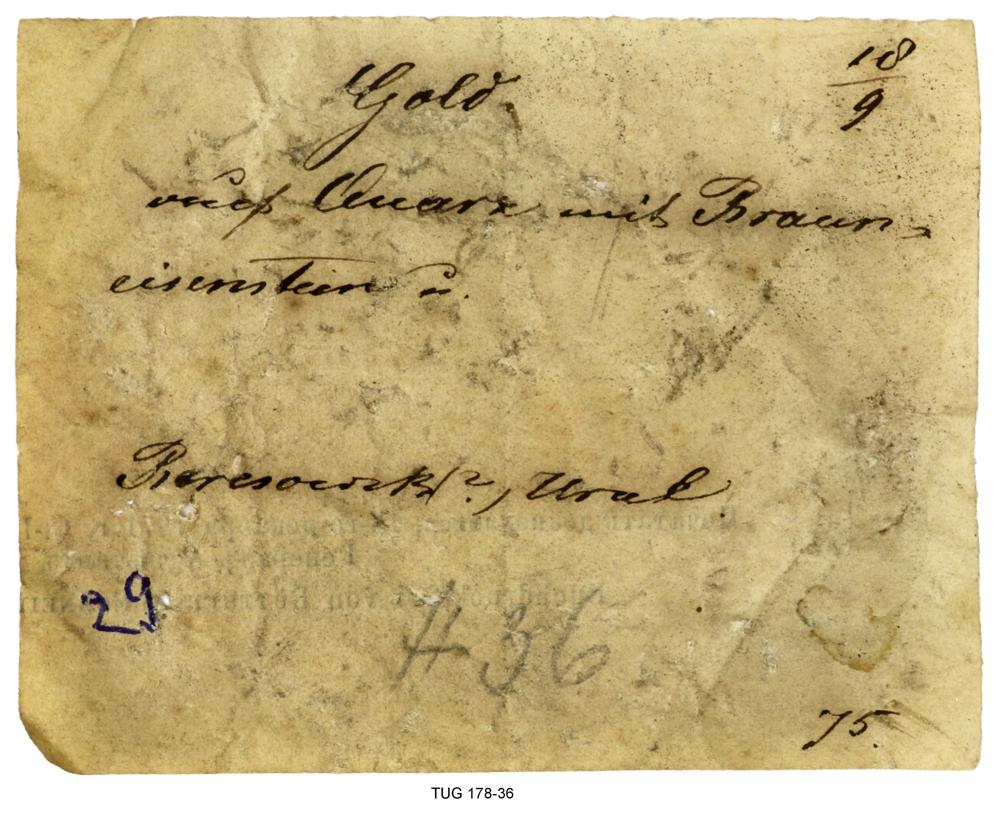 18
9
Gold
auf Quarz mit Braun-
eisenstein u.
Beresowsk?, Ural
29
A 36
75.
TUG 178-36